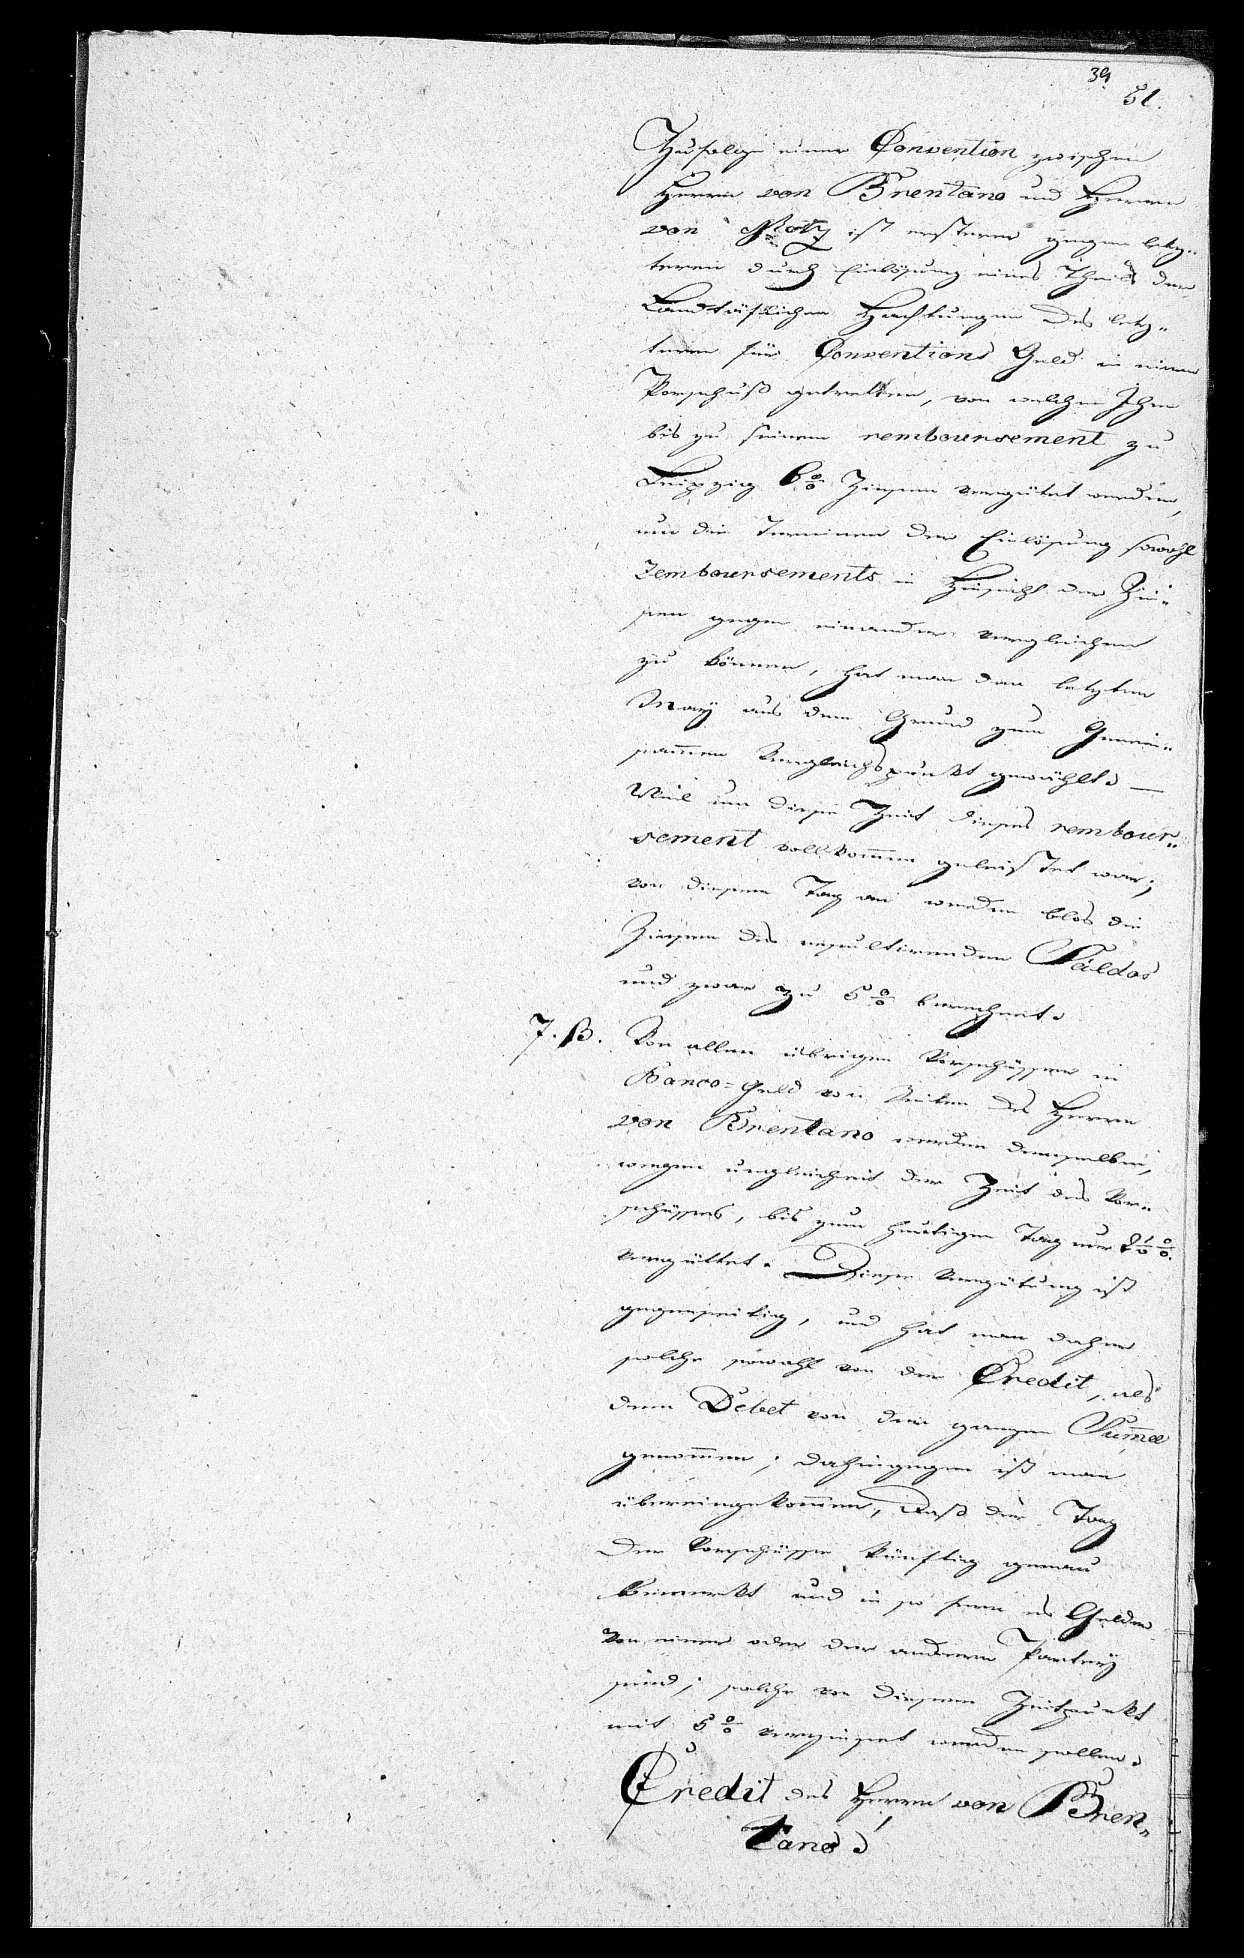 39
51.
Zufolge einer Convention zwischen
Herrn von Brentano und Herrn
von Motz ist ersterer gegen letz„
teren durch Einlösung eines Theils der
Landtäflichen Haftungen des letz„
teren für Conventions Geld in einen
Vorschuß getretten, von welchen Ihm
bis zu seinem remboursement zu
Leipzig 6 0/0 Zinsen vergütet werden,
um die Terminen der Einlösung sowohl
remboursements in Hinsicht der Zin„
sen gegen einander vergleichen
zu können, hat man den letzten
May aus dem Grund zum Gemein„
samen Vergleichspunkt gewählt. —
Weil um diese Zeit dieses rembour„
sement vollkommen geleistet war;
von diesem Tag an werden blos die
Zinsen des resultirenden Saldos
und zwar zu 5 0/0 berechnet.
7. B. Von allen übrigen Vorschüssen in
Banco=Geld von Seiten des Herrn
von Brentano werden demselben,
wegen ungleichheit der Zeit des Vor„
schusses, bis zum heutigen Tag nur
vergüttet. Diese Vergütung ist
gegenseitig, und hat man daher
solche sowohl von der Credit, als
dem Debet von der ganzen Summe
genommen; dahingegen ist man
übereingekommen, daß der Tag
der Vorschüsse künftig genau
bemerkt und in so fern es Gelder
von einer oder der andern Partey
sind, solche von diesem Zeitpunkt
mit 5 0/0 verzinset werden sollen.
Credit des Herrn von Bren„
tano.